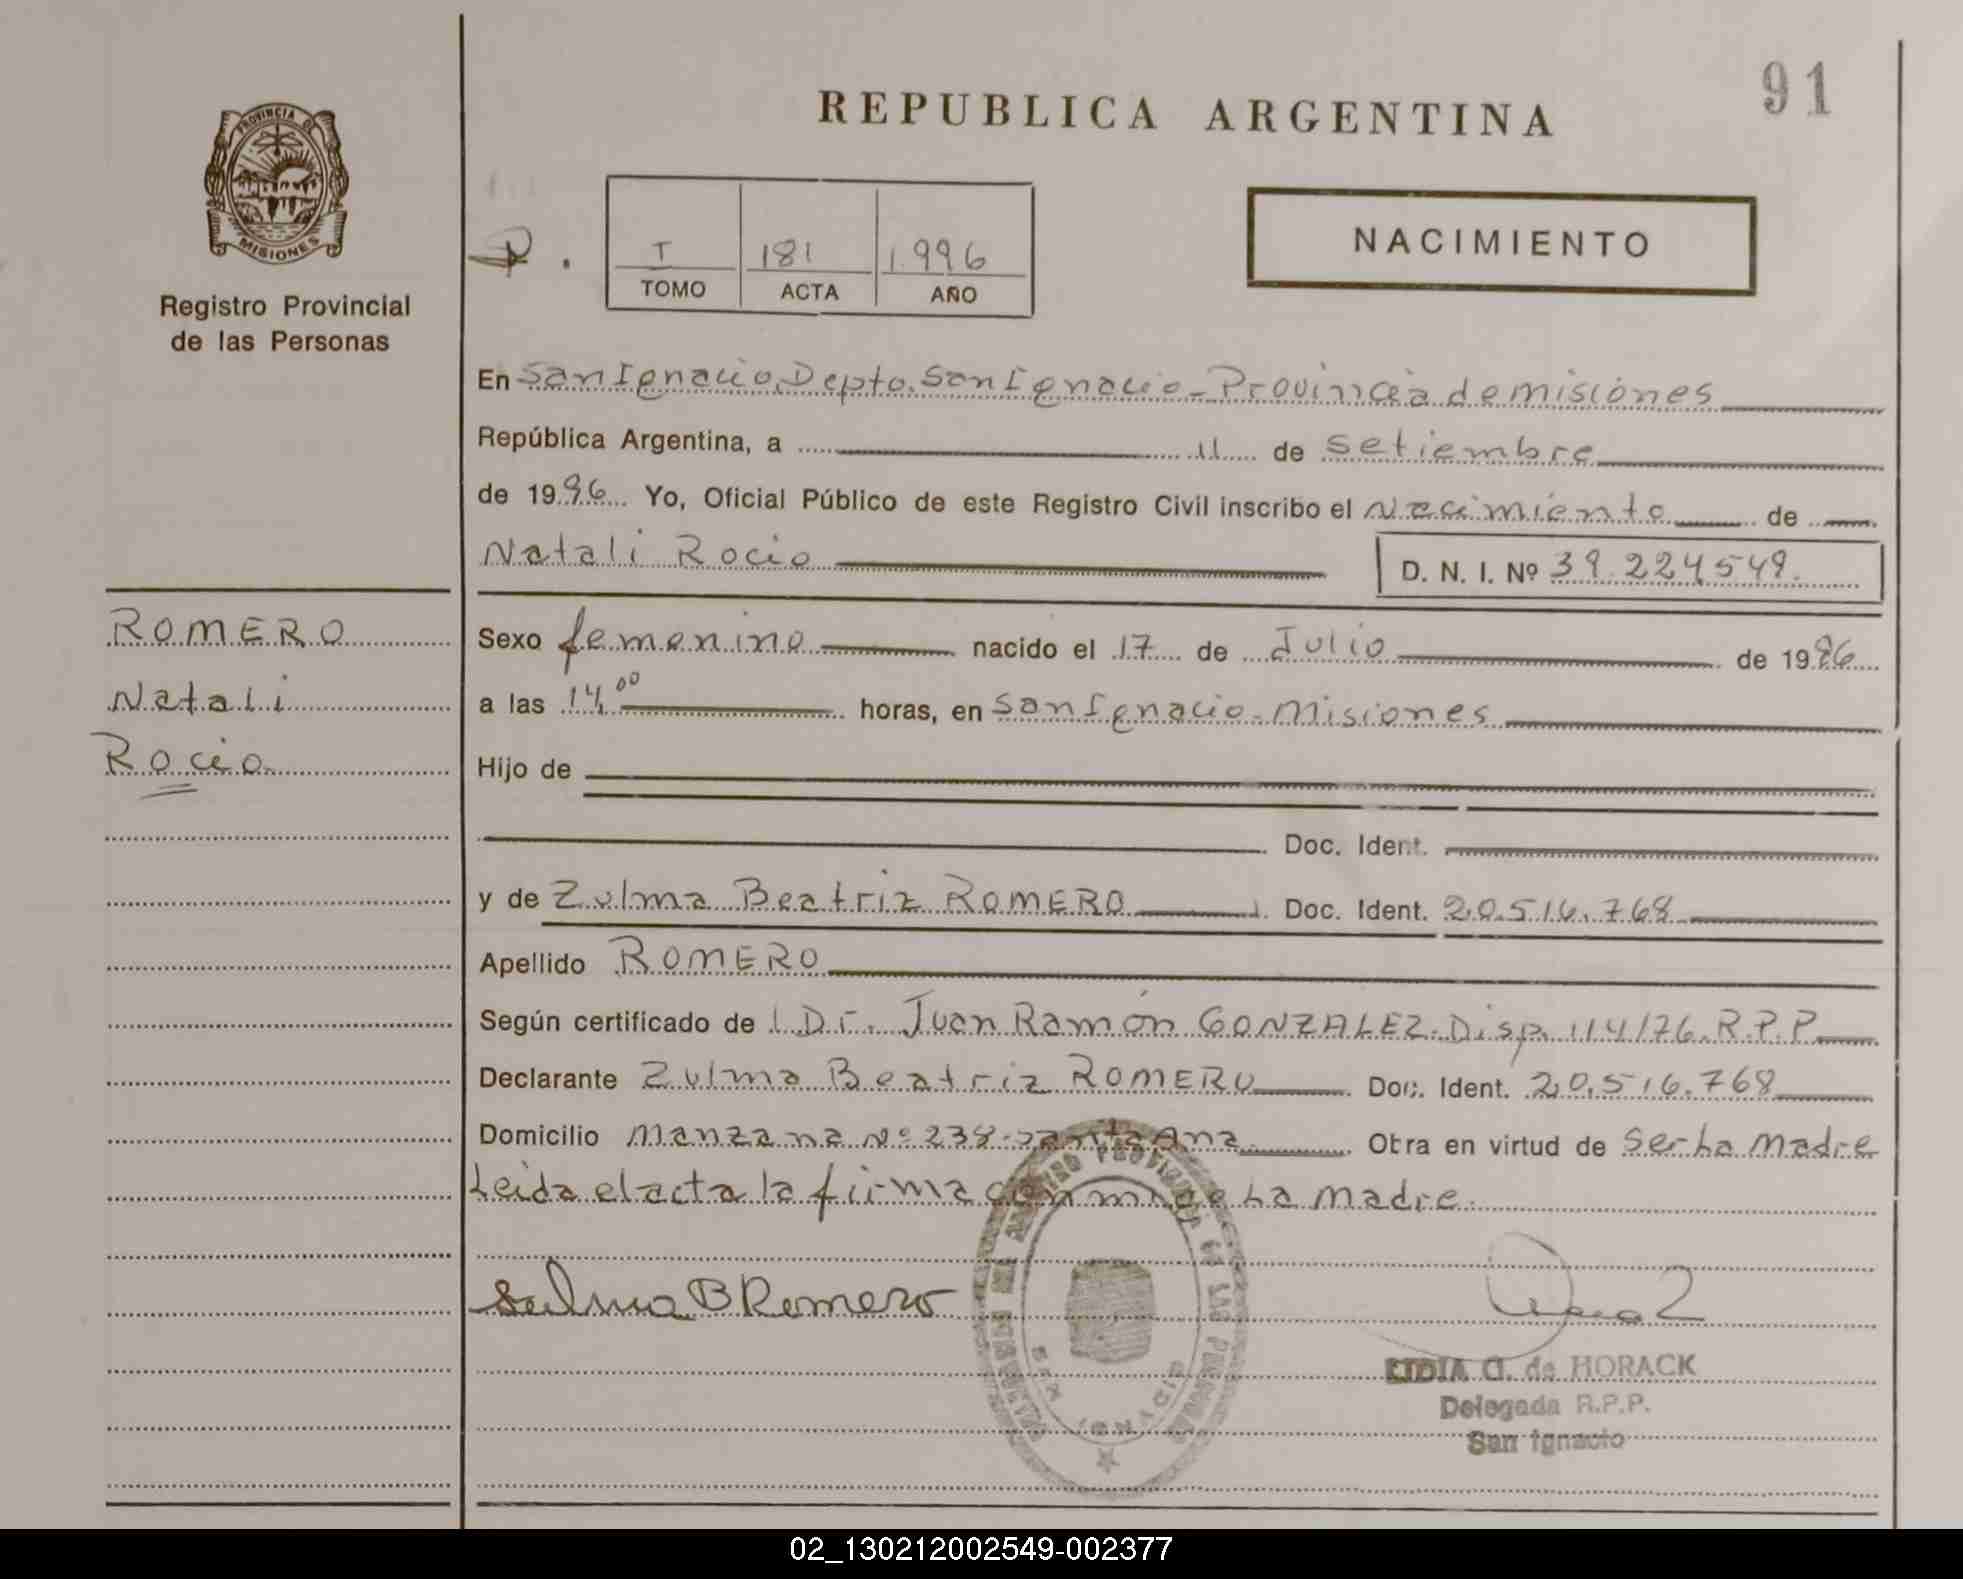 91
REPUBLICA ARGENTINA
PROVINCIA DE
MISIONES
Registro Provincial
de las Personas
T 181 1.996
TOMO ACTA AÑO
NACIMIENTO
En San Ignacio, Depto. San Ignacio - Provincia de misiones
República Argentina, a 11 de setiembre
de 1996 Yo, Oficial Público de este Registro Civil inscribo el Nacimiento de
Natali Rocio D. N. I. Nº 39.224.549.
ROMERO
Natali
Rocio
Sexo femenino nacido el 17 de Julio de 1996
a las 14,00 horas, en San Ignacio - Misiones
Hijo de
Doc. Ident.
y de Zulma Beatriz ROMERO Doc. Ident. 20.516.768
Apellido ROMERO
Según certificado de l Dr. Juan Ramón GONZALEZ. Disp. 114/76. R.P.P
Declarante Zulma Beatriz ROMERO Doc. Ident. 20.516.768
Domicilio Manzana Nº 238 - Santa Ana Obra en virtud de ser La madre
Leida el acta la firma conmigo La madre.
Sulma B Romero
LIDIA G. de HORACK
Delegada R.P.P.
San Ignacio
02_130212002549-002377